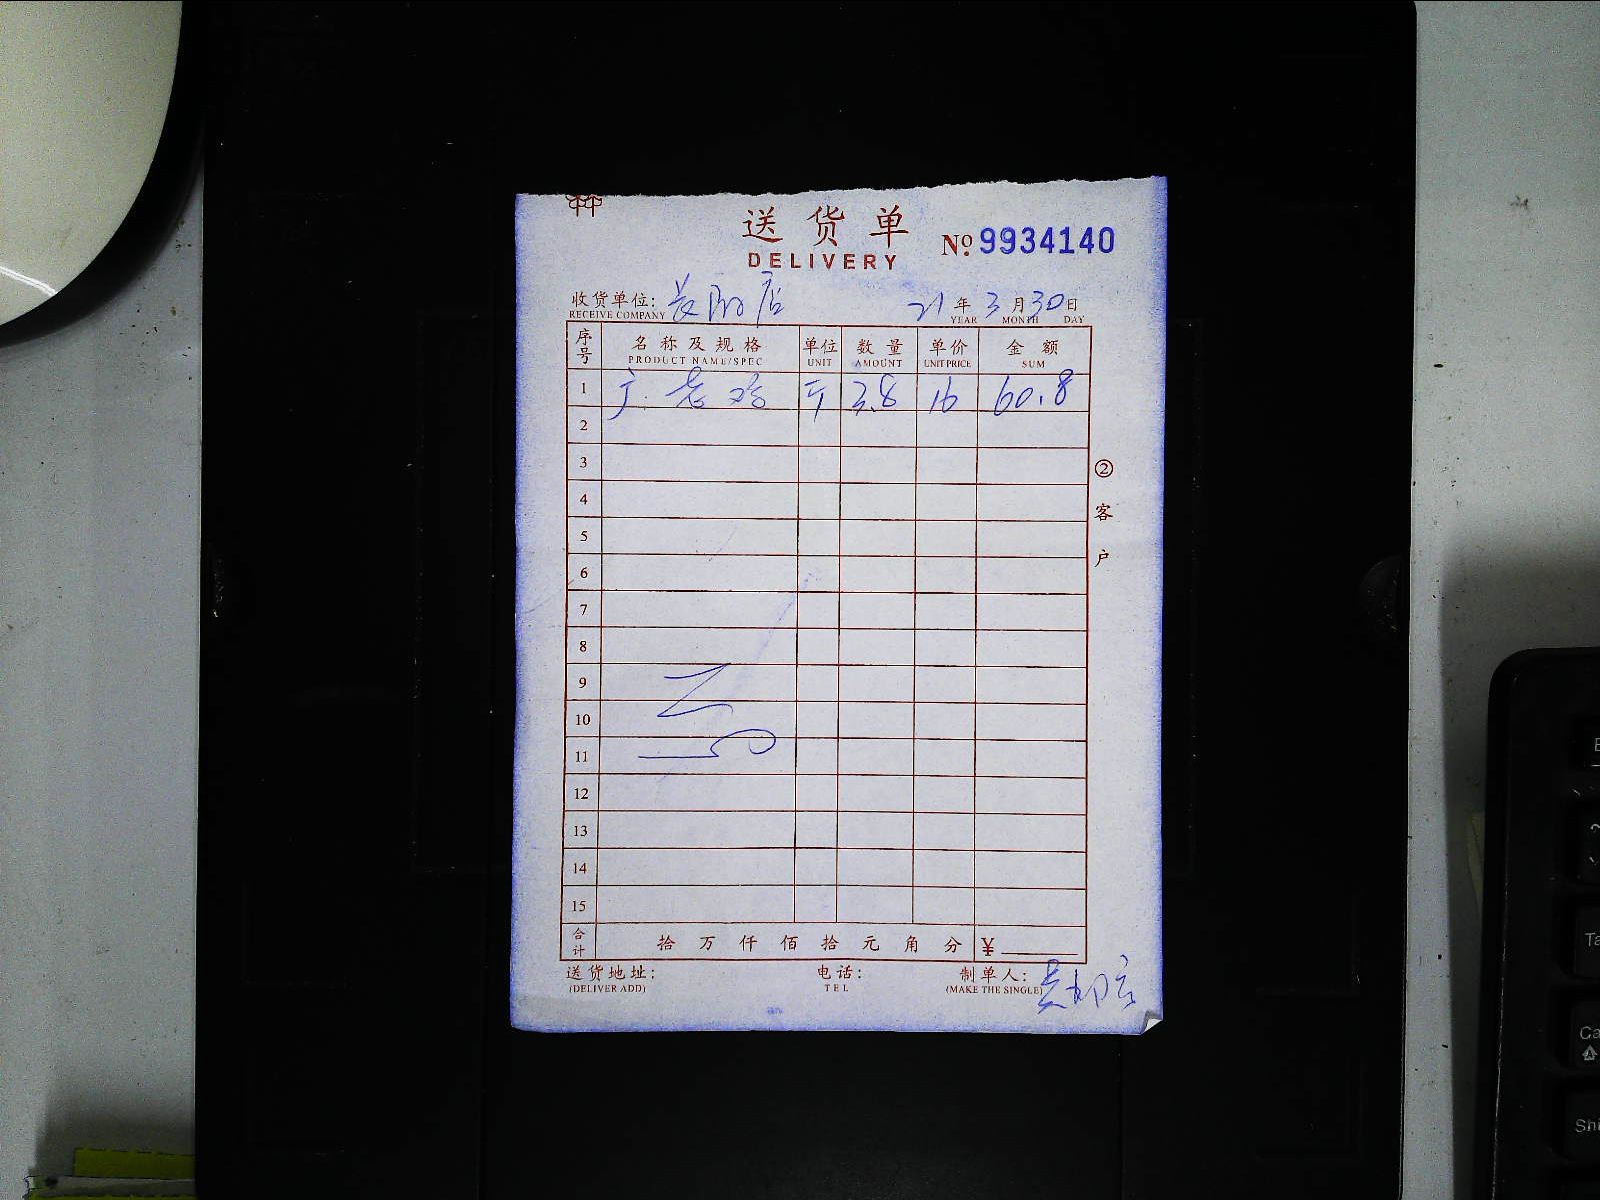 送货单
DELIVERY
№ 9934140
收货单位: 店 21年3月30日
RECEIVE COMPANY YEAR MONTH DAY
序号 名称及规格 单位 数量 单价 金额
PRODUCT NAME/SPEC UNIT AMOUNT UNIT PRICE SUM
1 老鸡 斤 3.8 16 60.8
2
3
4
5
6
7
8
9
10
11
12
13
14
15
②客户
合计 拾万仟佰拾元角分 ¥
送货地址: 电话: 制单人:
(DELIVER ADD) TEL (MAKE THE SINGLE)